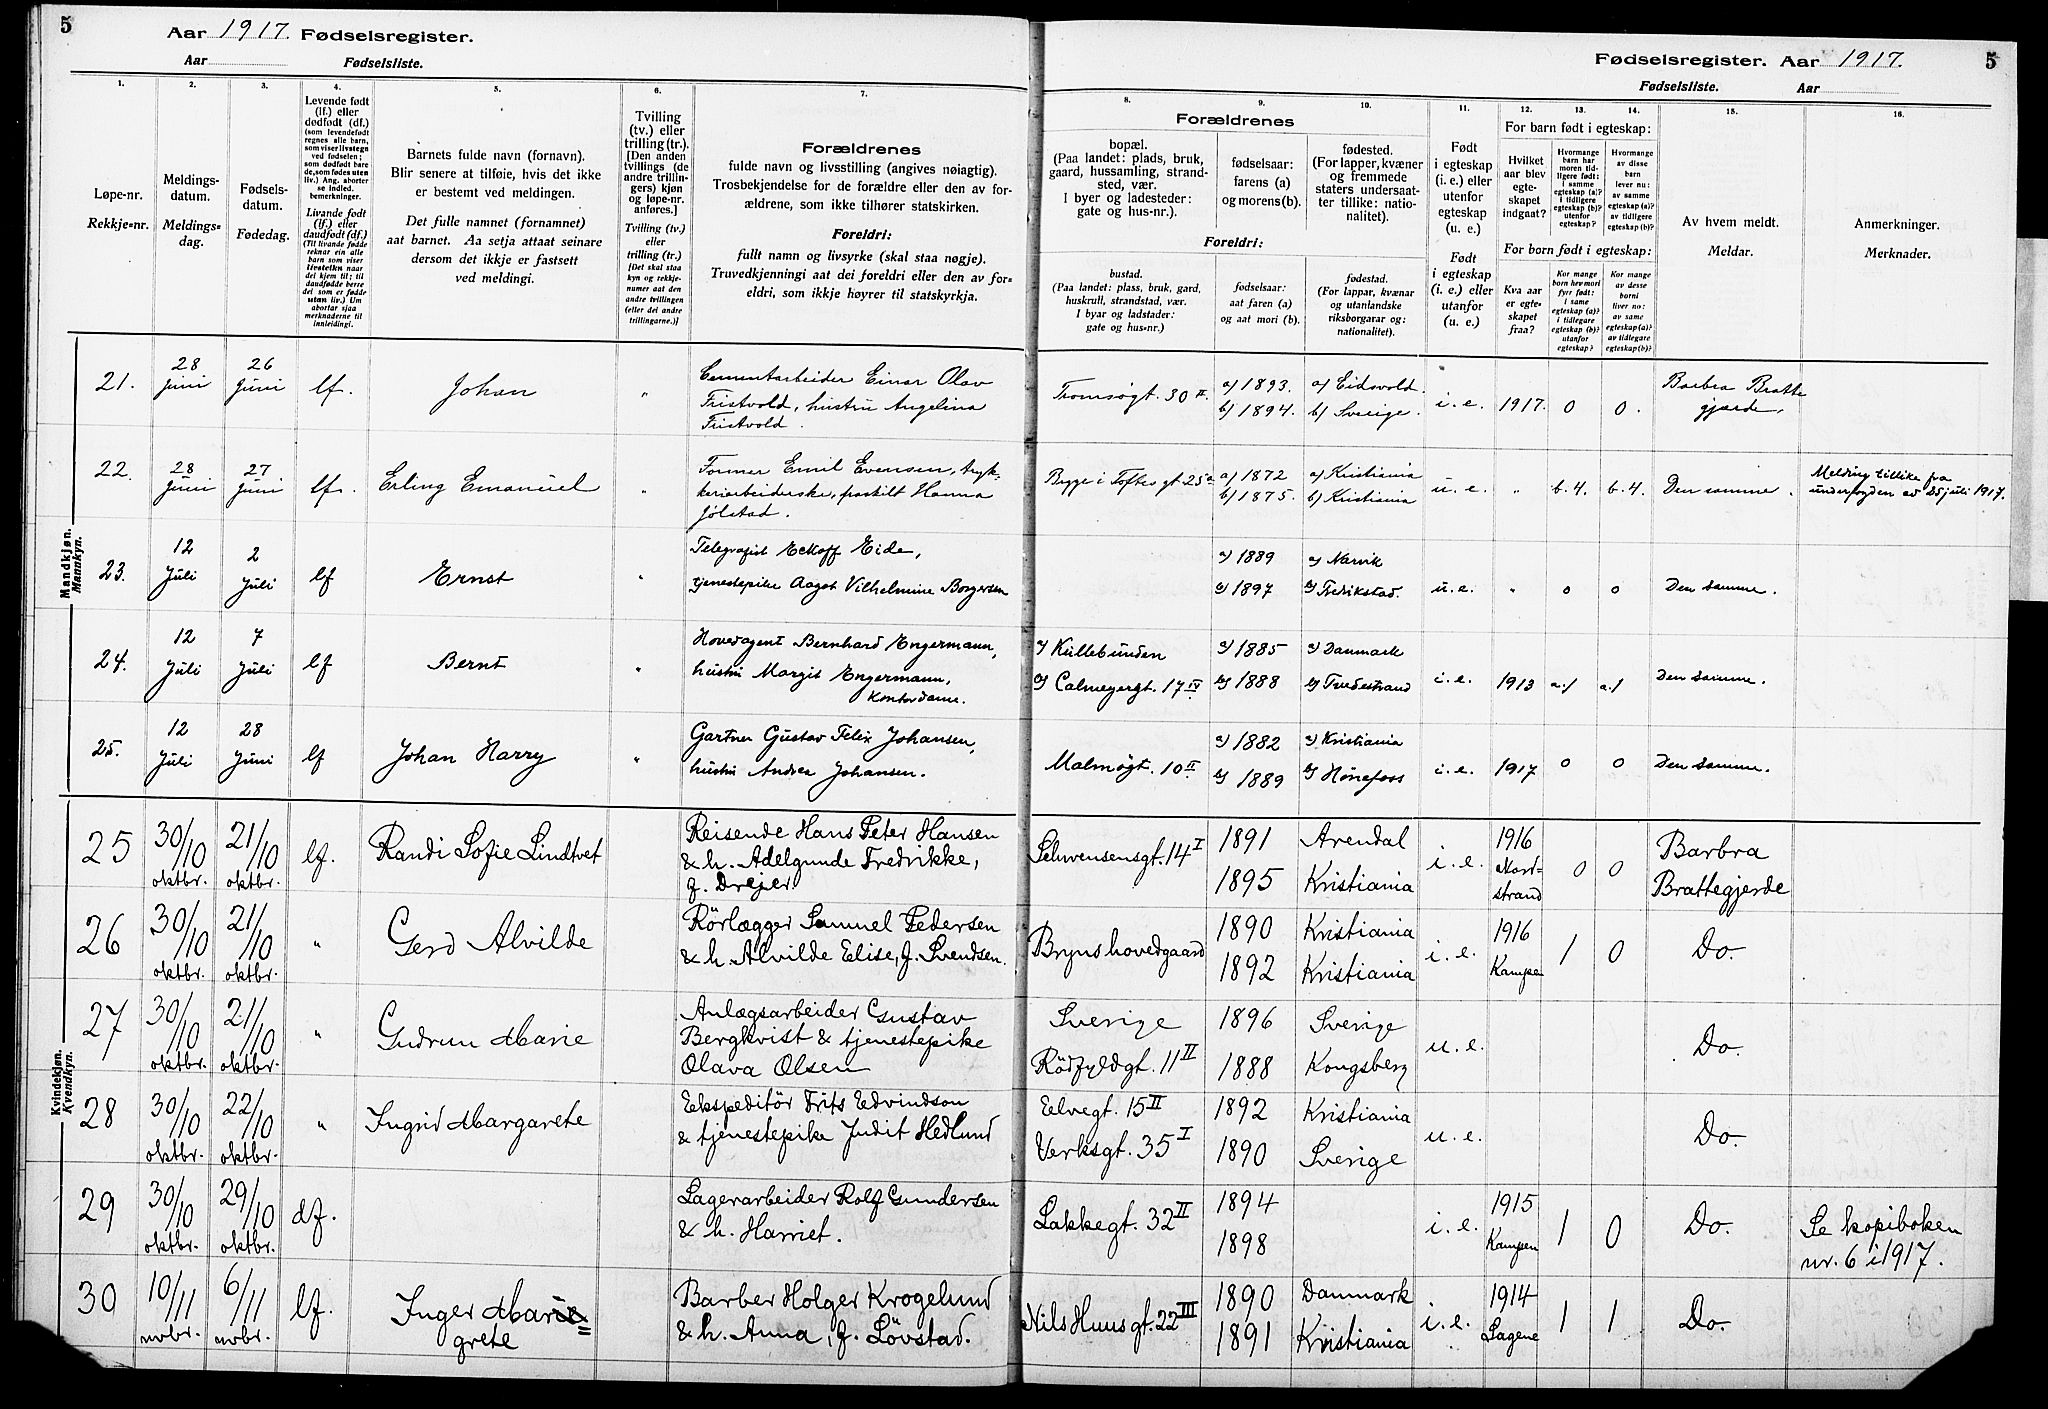 5
Aar 1917. Fødselsregister.
Aar Fødselsliste.
1.
2.
3.
4.
5.
6.
7.
Løpe-nr.
Rekkje-nr.
Meldings-
datum.
Meldings-
dag.
Fødsels-
datum.
Fødedag.
Levende født
(lf.) eller
dødfødt (df.)
(som levendefødt
regnes alle barn,
som viser livstegn
ved fødselen;
som dødfødt bare
de, som fødes uten
liv.) Ang. aborter
se indled.
bemerkninger.
Livande født
(lf.) eller
daudfødt (df.)
(Til livande fødde
reknar ein alle
barn som viser
livsteikn naar
dei kjem til; til
daudfødde berre
dei som er fødde
utan liv.) Um
abortar sjaa
merknaderne til
innleidingi.
Barnets fulde navn (fornavn).
Blir senere at tilføie, hvis det ikke
er bestemt ved meldingen.
Det fulle namnet (fornamnet)
aat barnet. Aa setja attaat seinare
dersom det ikkje er fastsett
ved meldingi.
Tvilling
(tv.) eller
trilling (tr.).
[Den anden
tvillings (de
andre trillin-
gers) kjøn
og løpe-nr.
anføres.]
Tvilling (tv.)
eller
trilling (tr.)
[Det skal staa
kyn og rekkje-
numer aat den
andre tvillingen
(eller dei andre
trillingarne.)]
Forældrenes
fulde navn og livsstilling (angives nøiagtig).
Trosbekjendelse for de forældre eller den av for-
ældrene, som ikke tilhører statskirken.
Foreldri:
fullt namn og livsyrke (skal staa nøgje).
Truvedkjenningi aat dei foreldri eller den av for-
eldri, som ikkje høyrer til statskyrkja.
Mandkjøn.
Mannkyn.
21.
28
juni
26
juni
lf.
Johan
"
Cementarbeider Einar Olav
Tristvold, hustru Angelina
Tristvold.
22.
28
juni
27
juni
lf.
Erling Emanuel
"
Former Emil Evensen, tryk-
keriarbeiderske, fraskilt Hanna
Jölstad.
23.
12
Juli
2
Juli
lf
Ernst
"
Telegrafist Eide,
tjenestepike Aagot Vilhelmine Borgersen
24.
12
Juli
7
Juli
lf
Bernt
"
Hovedagent Bernhard Engermann,
hustru Margit Engermann,
Kontordame.
25.
12
Juli
28
Juni
lf
Johan Harry
"
Gartner Gustav Felix Johansen,
hustru Andrea Johansen.
Kvindekjøn.
Kvendkyn.
25
30/10
oktbr.
21/10
oktbr.
lf.
Randi Sofie Lindtvet
Reisende Hans Peter Hansen
& h. Adelgunde Fredrikke,
f. Drejer
26
30/10
oktbr.
21/10
oktbr.
"
Gerd Alvilde
Rörlægger Samuel Pedersen
& h. Alvilde Elise, f. Svendsen.
27
30/10
oktbr.
21/10
oktbr.
"
Gudrun Marie
Anlægsarbeider Gustav
Bergkvist & tjenestepike
Olava Olsen
28
30/10
oktbr.
22/10
oktbr.
"
Ingrid Margarete
Ekspeditör Frits Edvindson
& tjenestepike Judit Hedlund
29
30/10
oktbr.
29/10
oktbr.
df.
Lagerarbeider Rolf Gundersen
& h. Harriet.
30
10/11
novbr.
6/11
novbr.
lf.
Inger Marie
grete
Barber Holger Krogelund
& h. Anna, f. Lövstad.
Fødselsregister. Aar 1917. 5
Fødselsliste. Aar
8.
9.
10.
11.
12.
13.
14.
15.
16.
Forældrenes
bopæl.
(Paa landet: plads, bruk,
gaard, hussamling, strand-
sted, vær.
I byer og ladesteder:
gate og hus-nr.).
fødselsaar:
farens (a)
og morens (b).
fødested.
(For lapper, kvæner
og fremmede
staters undersaat-
ter tillike: natio-
nalitet).
Foreldri:
bustad.
(Paa landet: plass, bruk, gard,
huskrull, strandstad, vær.
I byar og ladstader:
gate og hus-nr.)
fødselsaar:
aat faren (a)
og aat mori (b).
fødestad.
(For lappar, kvænar
og utanlandske
riksborgarar og:
nationalitet).
Født
i egteskap
(i. e.) eller
utenfor
egteskap
(u. e.)
Født
i egteskap
(i. e.) eller
utanfor
(u. e.)
For barn født i egteskap:
Hvilket
aar blev
egte-
skapet
indgaat?
Hvormange
barn har
moren tid-
ligere født:
i samme
egteskap (a)?
i tidligere
egteskap (b)?
utenfor
egteskap?
Hvormange
av disse
barn
lever nu:
av samme
egteskap (a)?
av tidligere
egteskap (b)?
For born født i egteskap:
Kva aar
er egte-
skapet
fraa?
Kor mange
born hev mori
fyrr født:
i same
egteskap (a)?
i tidlegare
egteskap (b)?
utanfor
egteskap?
Kor mange
av desse
borni
liver no:
av same
egteskap (a)?
av tidlegare
egteskap (b)?
Av hvem meldt.
Meldar.
Anmerkninger.
Merknader.
Tromsøgt. 30 II.
a/ 1893.
b/ 1894.
a/ Eidsvold.
b/ Sverige.
i. e.
1917.
0
0.
Barbra Bratte
gjærde.
Bygge i Toftesgt. 25a
a/ 1872
b/ 1875.
a/ Kristiania
b/ Kristiania
u. e.
"
b. 4.
b. 4.
Den samme.
Melding tillike fra
underfogden av 25 juli 1917.
a/ 1889
b/ 1897
a/ Narvik
b/ Fredrikstad.
u. e.
"
0
0
Den samme.
a/ Kullebunden
b/ Calmeyergt. 17 IV
a/ 1885
b/ 1888
a/ Danmark
b/ Tvedestrand
i. e.
1913
a. 1
a. 1
Den samme.
Malmøgt. 10 II
a/ 1882
b/ 1889
a/ Kristiania
b/ Hönefoss
i. e.
1917
0
0
Den samme.
Schwensensgt. 14 I
1891
1895
Arendal
Kristiania
i. e.
1916
Nord-
strand
0
0
Barbra
Brattegjerde
Bryns hovedgaard
1890
1892
Kristiania
Kristiania
i. e.
1916
Kampen
1
0
Do.
Sverige
Rödfyldgt. 11 II
1896
1888
Sverige
Kongsberg
u. e.
Do.
Elvegt. 15 II
Verksgt. 35 I
1892
1890
Kristiania
Sverige
u. e.
Do.
Lakkegt. 32 II
1894
1898
i. e.
1915
Kampen
1
0
Do.
Se kopiboken
nr. 6 i 1917.
Nils Huus gt. 22 III
1890
1891
Danmark
Kristiania
i. e.
1914
Sagene
1
1
Do.